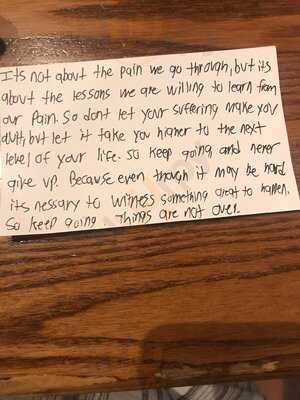 Its not about the pain we go through, but its
about the lessons we are willing to learn from
our pain. So dont let your suffering make you
quit, but let it take you higher to the next
level of your life. So keep going and never
give up. Because even though it may be hard
its nessary to witness something great to happen.
So keep going. Things are not over.